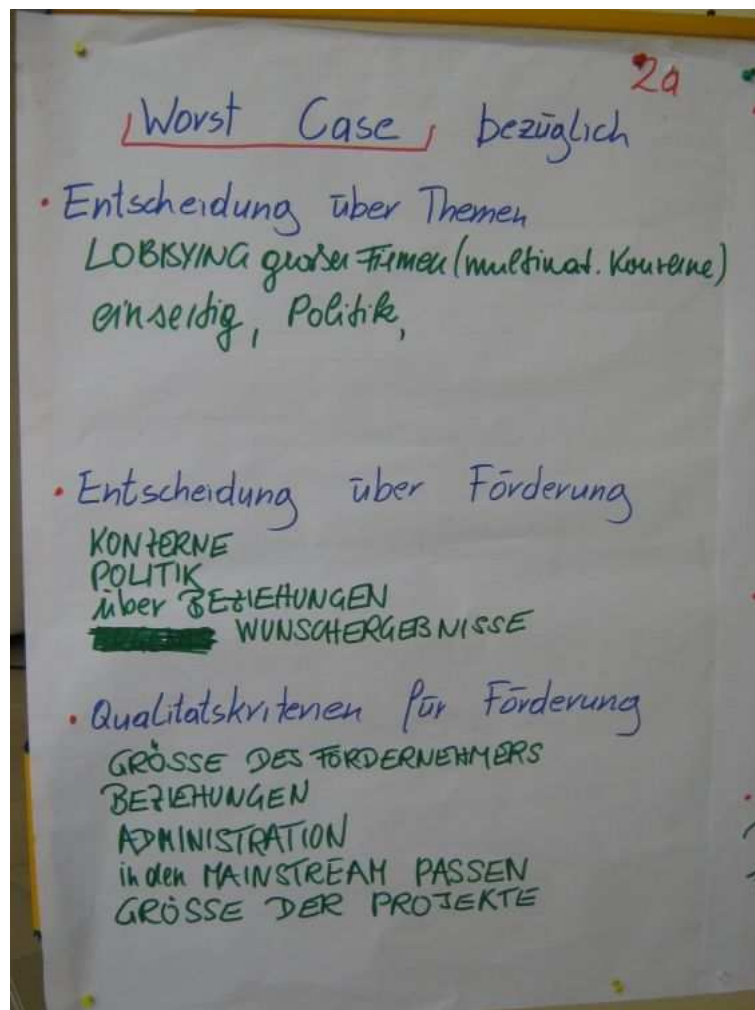 2a
Worst Case bezüglich
• Entscheidung über Themen
LOBBYING großer Firmen (multinat. Konzerne)
einseitig, Politik,
• Entscheidung über Förderung
KONZERNE
POLITIK
über BEZIEHUNGEN
WUNSCHERGEBNISSE
• Qualitätskriterien für Förderung
GRÖSSE DES FÖRDERNEHMERS
BEZIEHUNGEN
ADMINISTRATION
in den MAINSTREAM PASSEN
GRÖSSE DER PROJEKTE